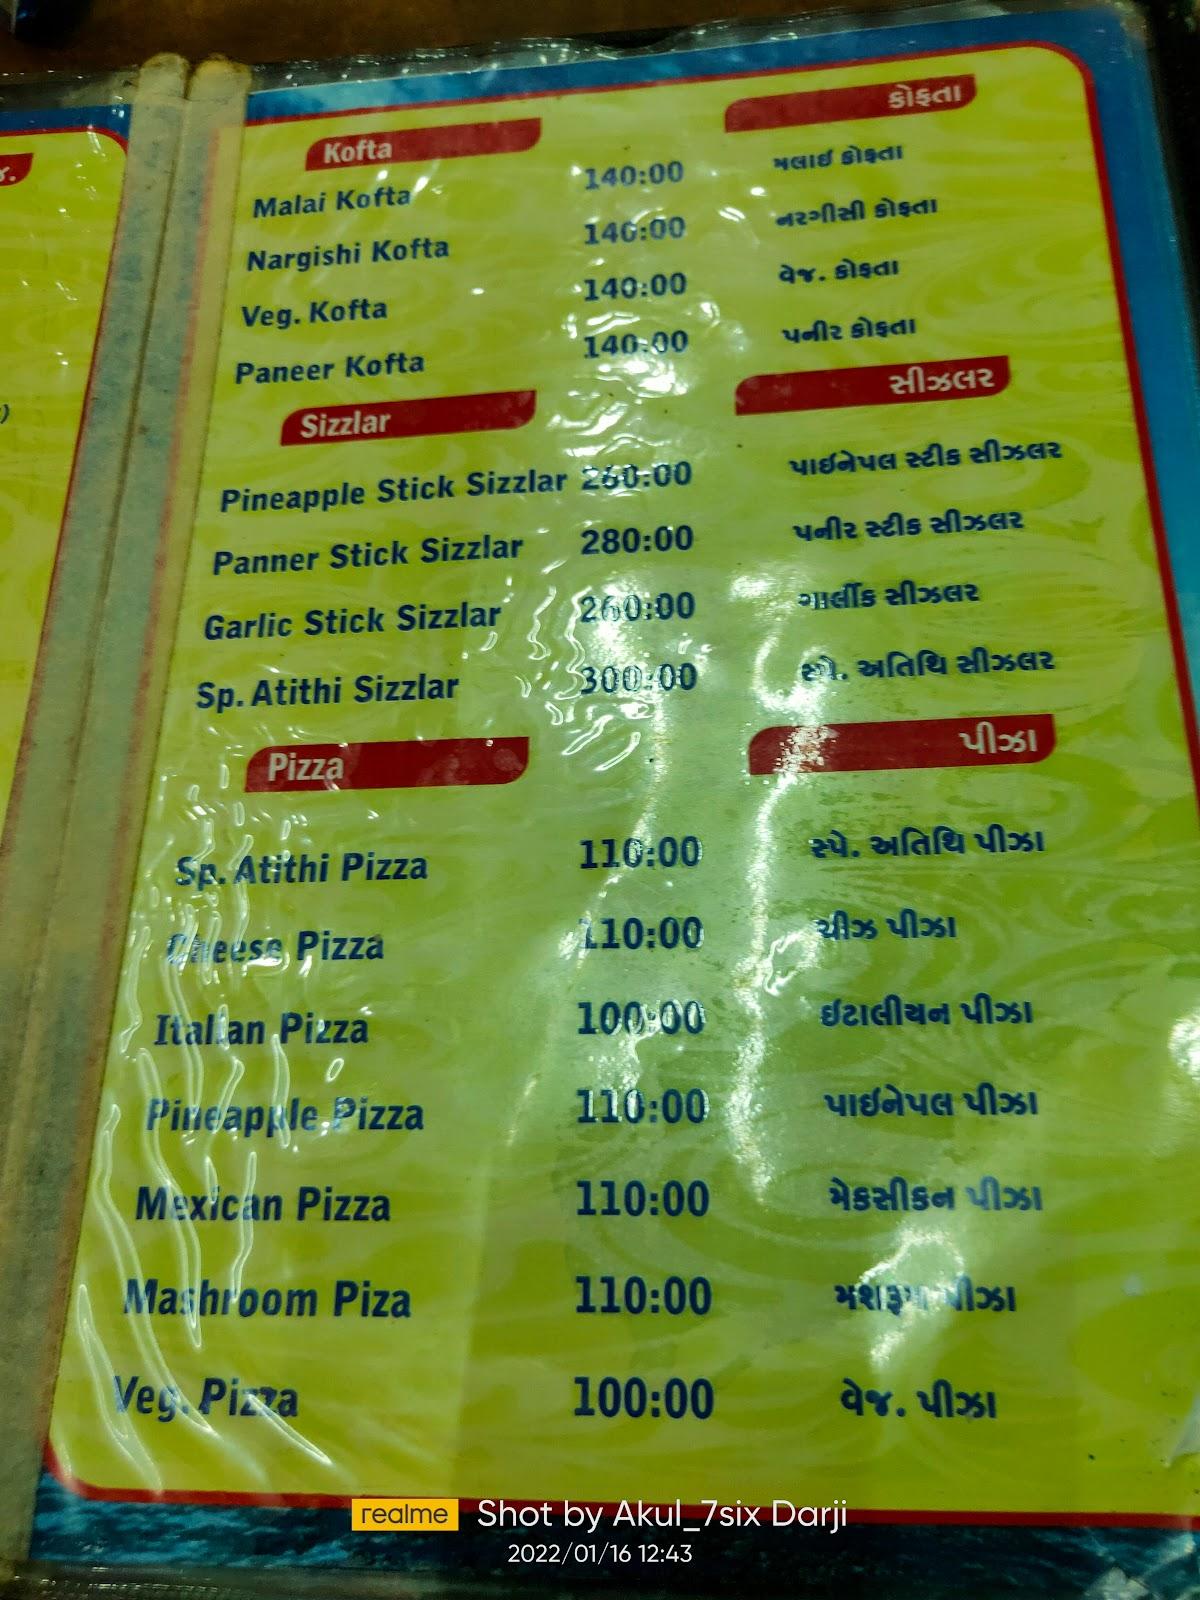 Kofta કોફતા
Malai Kofta 140:00 મલાઈ કોફતા
Nargishi Kofta 140:00 નરગીસી કોફતા
Veg. Kofta 140:00 વેજ. કોફતા
Paneer Kofta 140:00 પનીર કોફતા
Sizzlar સીઝલર
Pineapple Stick Sizzlar 260:00 પાઈનેપલ સ્ટીક સીઝલર
Panner Stick Sizzlar 280:00 પનીર સ્ટીક સીઝલર
Garlic Stick Sizzlar 260:00 ગાર્લીક સીઝલર
Sp. Atithi Sizzlar 300:00 સ્પે. અતિથિ સીઝલર
Pizza પીઝા
Sp. Atithi Pizza 110:00 સ્પે. અતિથિ પીઝા
Cheese Pizza 110:00 ચીઝ પીઝા
Italian Pizza 100:00 ઈટાલીયન પીઝા
Pineapple Pizza 110:00 પાઈનેપલ પીઝા
Mexican Pizza 110:00 મેકસીકન પીઝા
Mashroom Piza 110:00 મશરૂમ પીઝા
Veg. Pizza 100:00 વેજ. પીઝા
realme Shot by Akul_7six Darji
2022/01/16 12:43